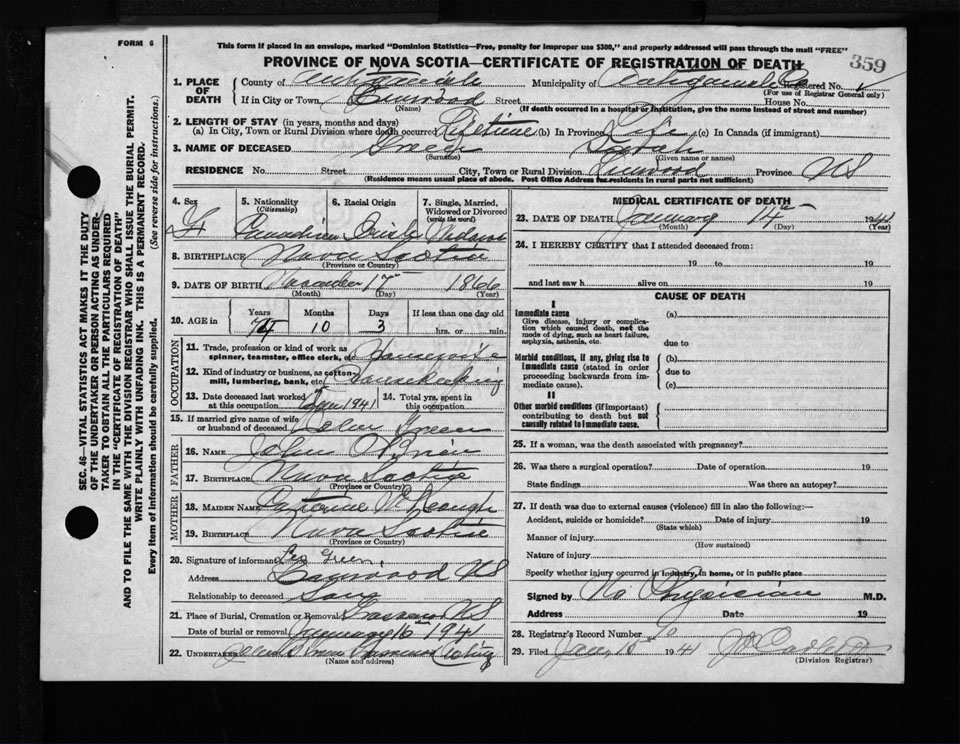 FORM 6
This form if placed in an envelope, marked "Dominion Statistics—Free, penalty for improper use $300," and properly addressed will pass through the mail "FREE"
PROVINCE OF NOVA SCOTIA—CERTIFICATE OF REGISTRATION OF DEATH
359
1. PLACE OF DEATH
County of Antigonish Municipality of Antigonish Co Registered No.
(For use of Registrar General only)
If in City or Town Street House No.
(Name) (If death occurred in a hospital or institution, give the name instead of street and number)
2. LENGTH OF STAY (in years, months and days)
(a) In City, Town or Rural Division where death occurred Lifetime (b) In Province Life (c) In Canada (if immigrant)
3. NAME OF DECEASED Green Sarah
(Surname) (Given name or names)
RESIDENCE No. Street City, Town or Rural Division Province NS
(Residence means usual place of abode. Post Office Address for residents in rural parts not sufficient)
4. Sex F
5. Nationality (Citizenship) Canadian
6. Racial Origin Irish
7. Single, Married, Widowed or Divorced (write the word) Widow
8. BIRTHPLACE Nova Scotia
(Province or Country)
9. DATE OF BIRTH 17 1866
(Month) (Day) (Year)
10. AGE in Years Months Days If less than one day old
74 10 3 hrs. or min.
OCCUPATION
11. Trade, profession or kind of work as spinner, teamster, office clerk, etc. Housewife
12. Kind of industry or business, as cotton-mill, lumbering, bank, etc. Housekeeping
13. Date deceased last worked at this occupation 1941
14. Total yrs. spent in this occupation
15. If married give name of wife or husband of deceased Green
FATHER
16. NAME John O'Brien
17. BIRTHPLACE Nova Scotia
(Province or Country)
MOTHER
18. MAIDEN NAME
19. BIRTHPLACE Nova Scotia
(Province or Country)
20. Signature of informant Leo Green
Address NS
Relationship to deceased Son
21. Place of Burial, Cremation or Removal NS
Date of burial or removal January 16 1941
22. UNDERTAKER
(Name and address)
MEDICAL CERTIFICATE OF DEATH
23. DATE OF DEATH January 14 1941
(Month) (Day) (Year)
24. I HEREBY CERTIFY that I attended deceased from:
19 to 19
and last saw h alive on 19
CAUSE OF DEATH
I
Immediate cause (a)
Give disease, injury or complication which caused death, not the mode of dying, such as heart failure, asphyxia, asthenia, etc.
due to
Morbid conditions, if any, giving rise to immediate cause (stated in order proceeding backwards from immediate cause).
(b)
due to
(c)
II
Other morbid conditions (if important) contributing to death but not causally related to immediate cause.
25. If a woman, was the death associated with pregnancy?
26. Was there a surgical operation? Date of operation 19
State findings Was there an autopsy?
27. If death was due to external causes (violence) fill in also the following:—
Accident, suicide or homicide? Date of injury 19
(State which)
Manner of injury
(How sustained)
Nature of injury
Specify whether injury occurred in industry, in home, or in public place
Signed by No Physician M.D.
Address Date 19
28. Registrar's Record Number
29. Filed Jan 1941
(Division Registrar)
SEC. 46—VITAL STATISTICS ACT MAKES IT THE DUTY
OF THE UNDERTAKER OR PERSON ACTING AS UNDER-
TAKER TO OBTAIN ALL THE PARTICULARS REQUIRED
IN THE "CERTIFICATE OF REGISTRATION OF DEATH"
AND TO FILE THE SAME WITH THE DIVISION REGISTRAR WHO SHALL ISSUE THE BURIAL PERMIT.
WRITE PLAINLY WITH UNFADING INK. THIS IS A PERMANENT RECORD.
Every item of information should be carefully supplied. (See reverse side for instructions.)